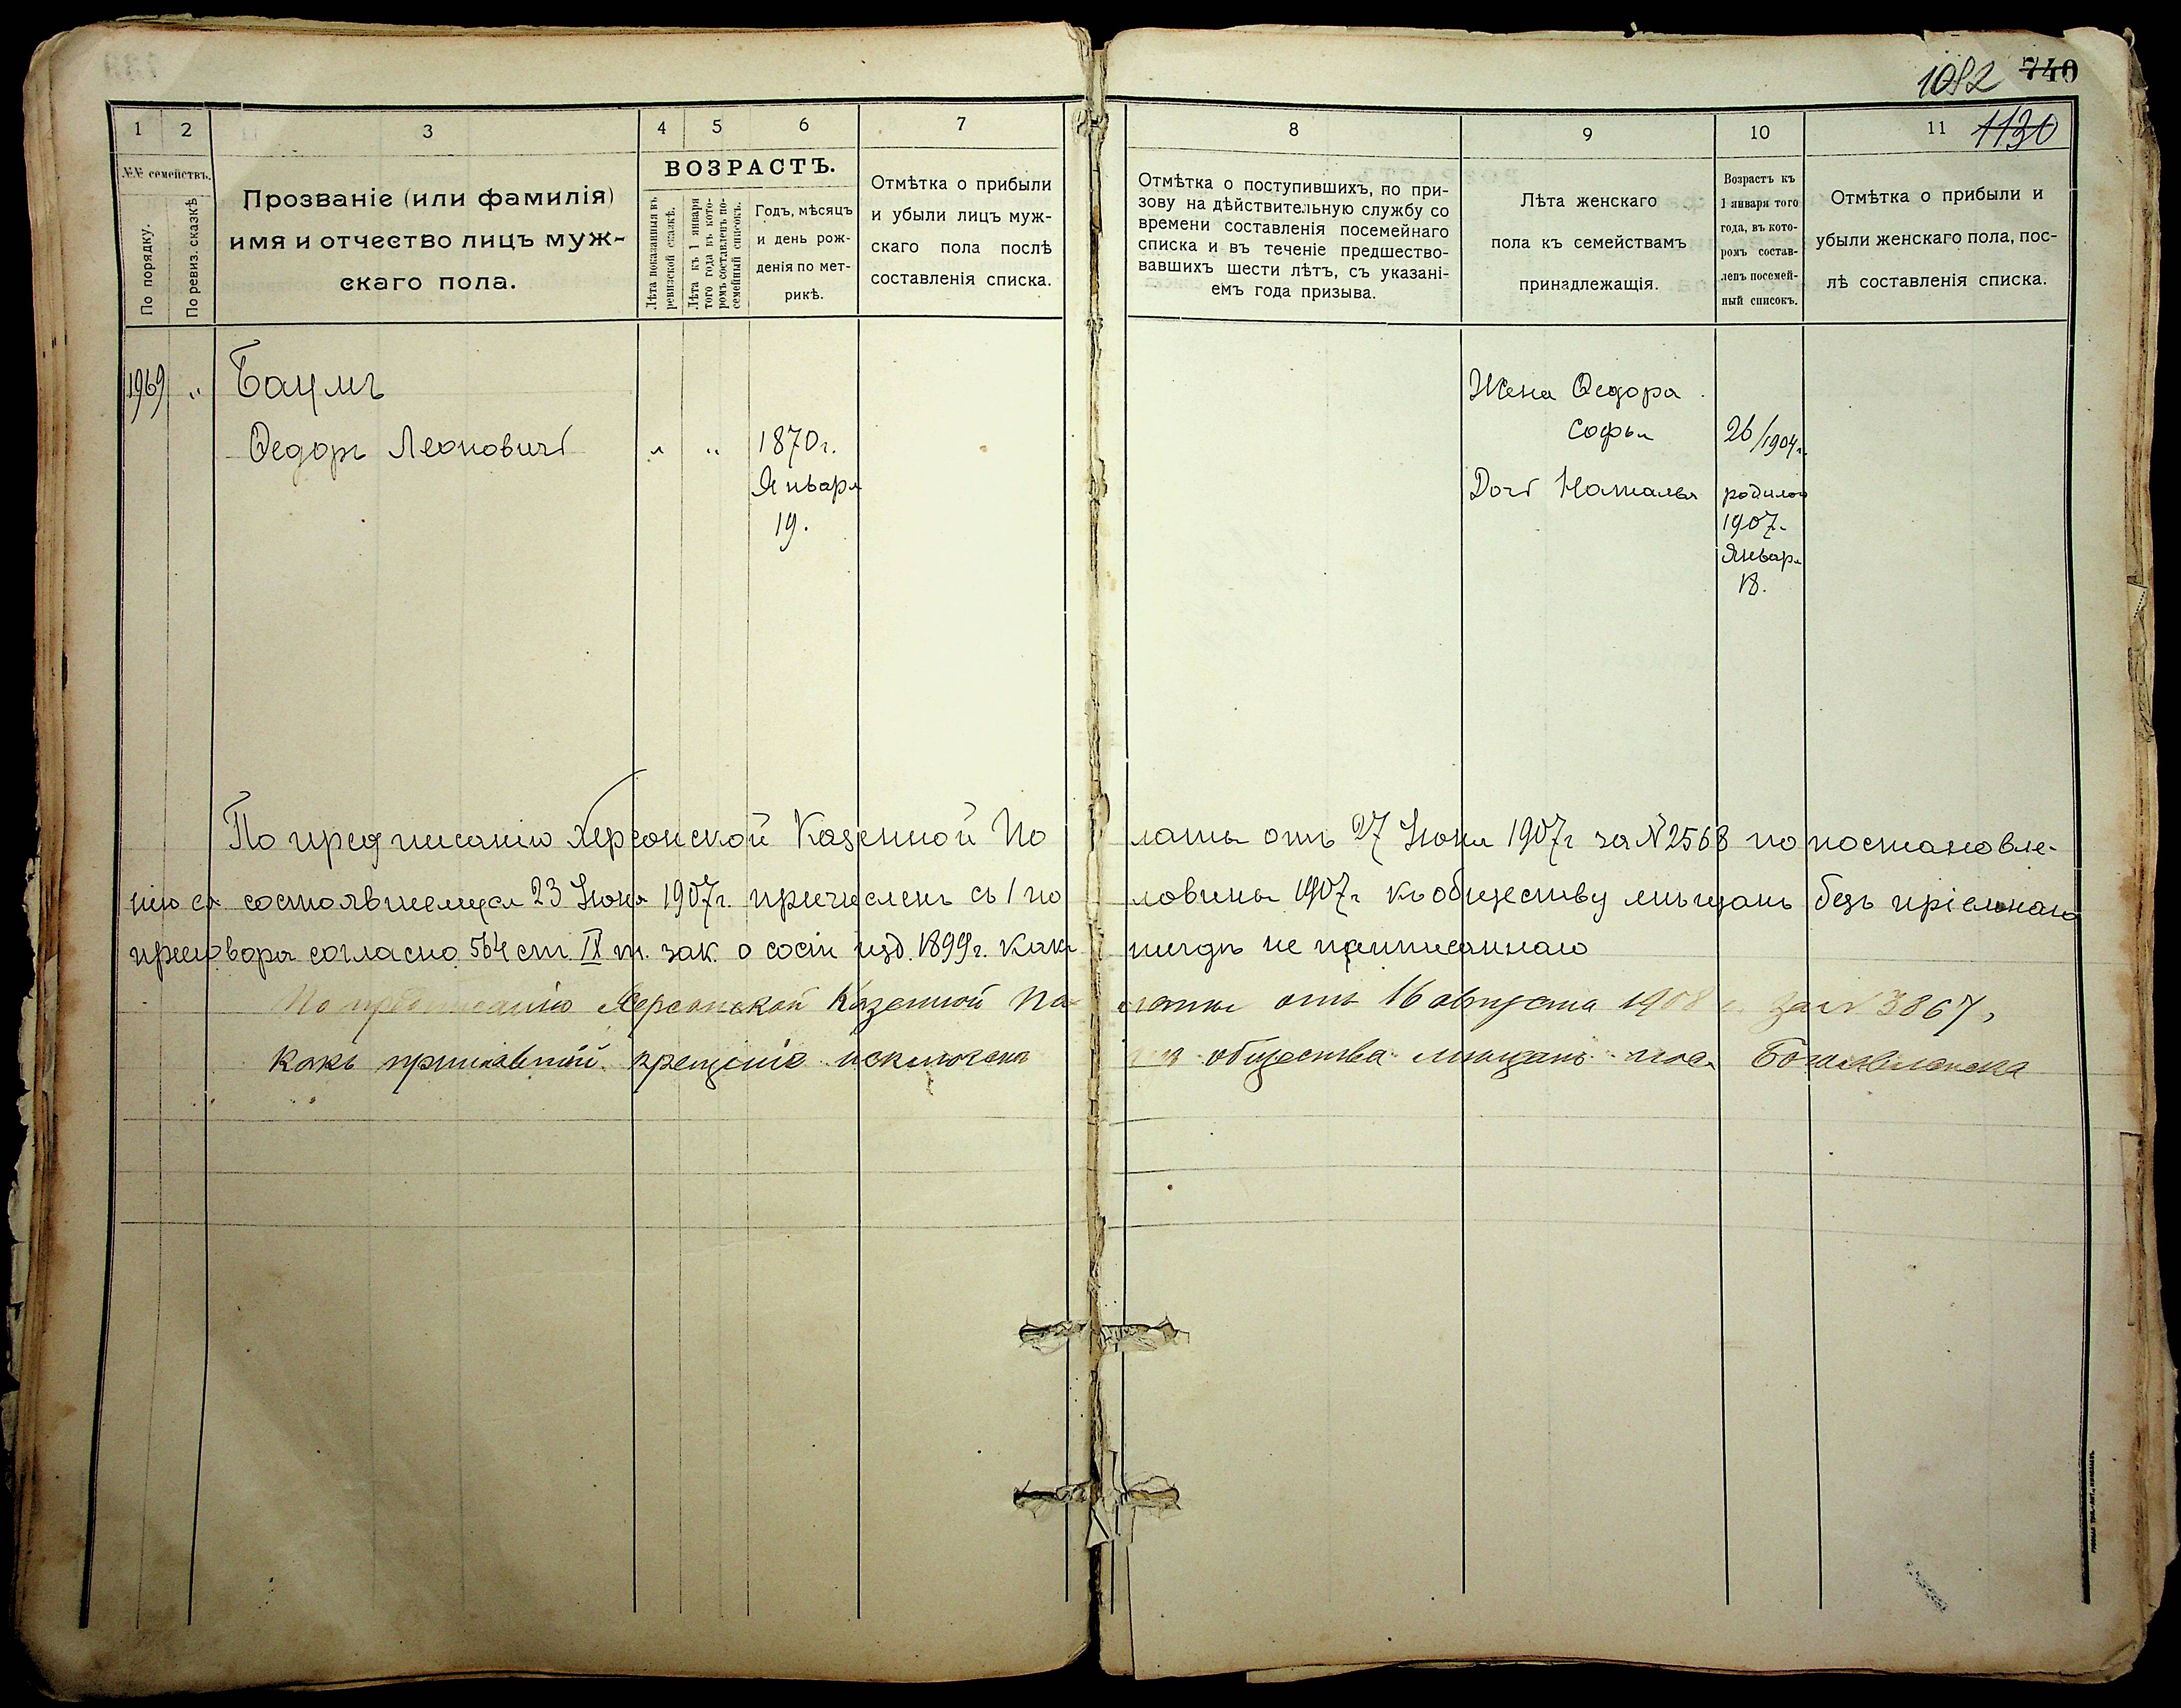 1082 740
1130
1 2 3 4 5 6 7
№№ семействъ.
По порядку.
По ревиз. сказкѣ
Прозваніе (или фамилія)
имя и отчество лицъ муж-
скаго пола.
ВОЗРАСТЪ.
Лѣта показанныя въ
ревизской сказкѣ.
Лѣта къ 1 января
того года въ кото-
ромъ составленъ по-
семейный списокъ.
Годъ, мѣсяцъ
и день рож-
денія по мет-
рикѣ.
Отмѣтка о прибыли
и убыли лицъ муж-
скаго пола послѣ
составленія списка.
8 9 10 11
Отмѣтка о поступившихъ, по при-
зову на дѣйствительную службу со
времени составленія посемейнаго
списка и въ теченіе предшество-
вавшихъ шести лѣтъ, съ указані-
емъ года призыва.
Лѣта женскаго
пола къ семействамъ
принадлежащія.
Возрастъ къ
1 января того
года, въ кото-
ромъ состав-
ленъ посемей-
ный списокъ.
Отмѣтка о прибыли и
убыли женскаго пола, пос-
лѣ составленія списка.
1969 " Баумъ
Ѳедоръ Леоновичъ " " 1870 г.
Января
19.
Жена Ѳедора
Софья 26/1904 г.
Дочь Наталья родилась
1907.
Января
18.
По предписанію Херсонской Казенной Па латы отъ 27 Іюня 1907 г за № 2568 по постановле-
нію ея состоявшемуся 23 Іюня 1907 г. причисленъ съ 1 по ловины 1907 г къ обществу мѣщанъ безъ пріемнаго
приговора согласно 564 ст. IX т. зак. о сост изд. 1899 г. какъ нигдѣ не приписаннаго
По предписанію Херсонской Казенной Па- латы отъ 16 августа 1908 г. за № 3867,
какъ принявшій крещеніе исключенъ изъ общества мѣщанъ пос. Богоявленска